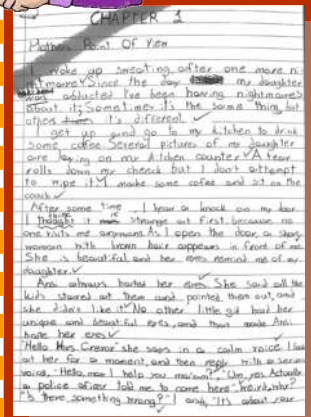 CHAPTER 1
Mothers Point Of View
I woke up sweating after one more ni
ghtmare✓Since the day my daughter
was abducted I've been having nightmares
about it; Sometimes it's the same thing but
others it's different.✓
I get up and go to my kitchen to drink
some coffee Several pictures of my daughter
are laying on my kitchen counter✓A tear
rolls down my cheeck but I don't attempt
to wipe it✓I make some cofee and sit on the
couch✓
After some time I hear a knock on my door.
I thought it is strange at first, because no
one visits me anymore. As I open the door, a
woman with brown hair appears in front of me.
She is beautiful and her eyes remind me of my
daughter.✓
always hated her eyes✓She said all the
kids stared at them and pointed them out, and
she didn't like it✓No other little girl had her
unique and beautiful eyes, and that made
hate her eyes✓
"Hello Mrs. she says in a calm voice I
at her for a moment, and then reply with a
voice, "Hello, may I help you ma'am", "Um, yes. Actually
a police told me to come here"
"Is there something wrong?" I "It's about your